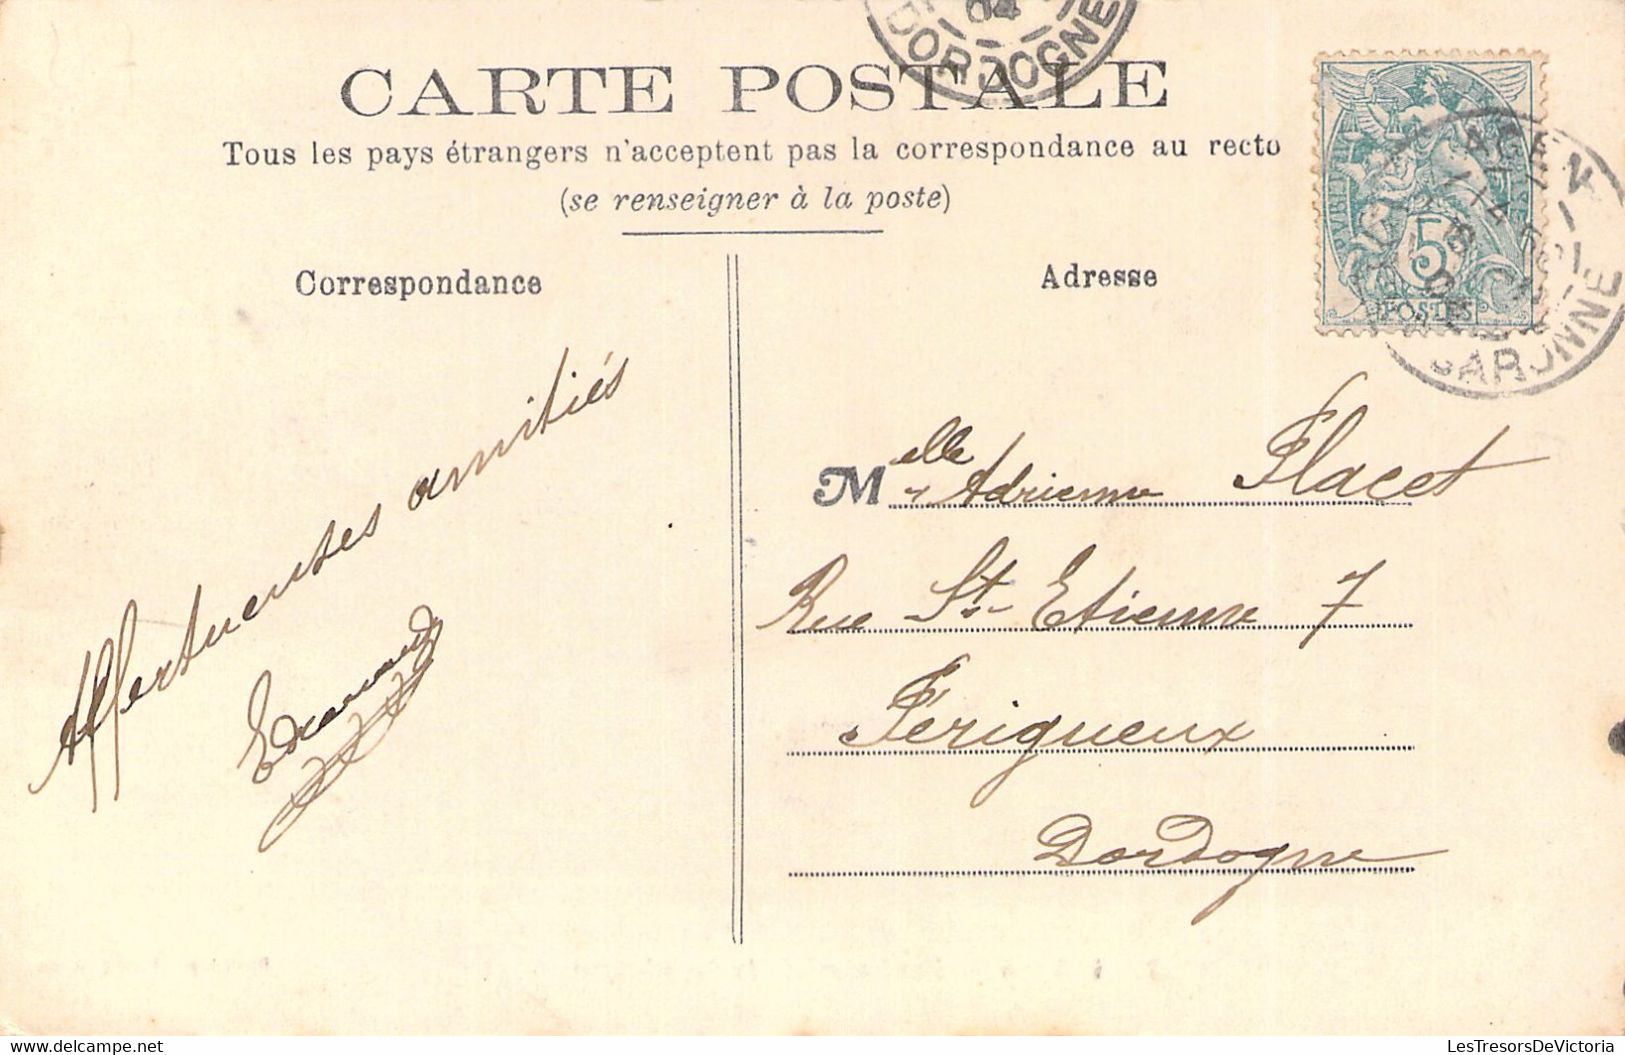 04
DORDOGNE
CARTE POSTALE
Tous les pays étrangers n'acceptent pas la correspondance au recto
(se renseigner à la poste)
5
POSTES
AGEN
GARONNE
Correspondance
Adresse
Affectueuses amitiés
Edmond
Melle Adrienne Placet
Rue St-Etienne 7
Périgueux
Dordogne
www.delcampe.net
LesTresorsDeVictoria